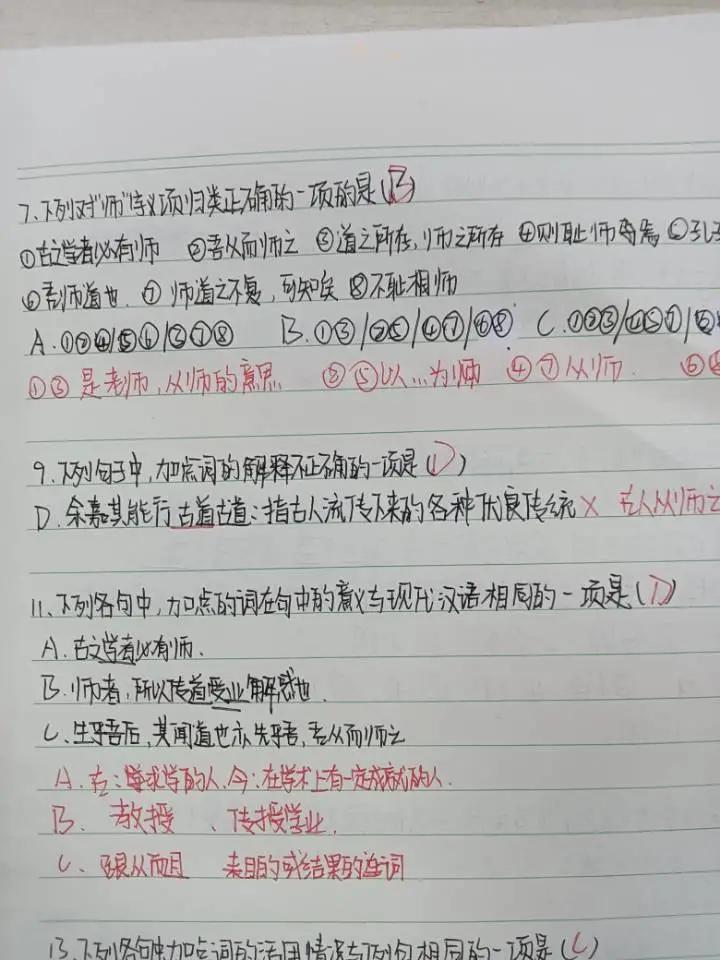 7、下列对"师"字义项归类正确的一项的是(B)
①古之学者必有师 ②吾从而师之 ③道之所存,师之所存 ④则耻师焉
⑥吾师道也. ⑦ 师道之不复,可知矣 ⑧不耻相师
A.①②④/⑤⑥/③⑦⑧ B.①③/②⑤/④⑦/⑥⑧ C.①②③/④⑤⑦/
①③ 是老师,从师的意思 ②⑤以…为师 ④⑦从师. ⑥
9、下列句子中,加点词的解释不正确的一项是(D)
D.余嘉其能行古道古道:指古人流传下来的各种优良传统 × 古人从师之
11、下列各句中,加点的词在句中的意义与现代汉语相同的一项是(D)
A.古之学者必有师.
B.师者,所以传道受业解惑也.
C.生乎吾后,其闻道也亦先乎吾,吾从而师之
A.古:求学的人.今:在学术上有一定成就的人.
B. 教授 、传授学业.
C、跟从而且 表目的或结果的连词
13、下列各句中加点词的活用情况与例句相同的一项是(C)